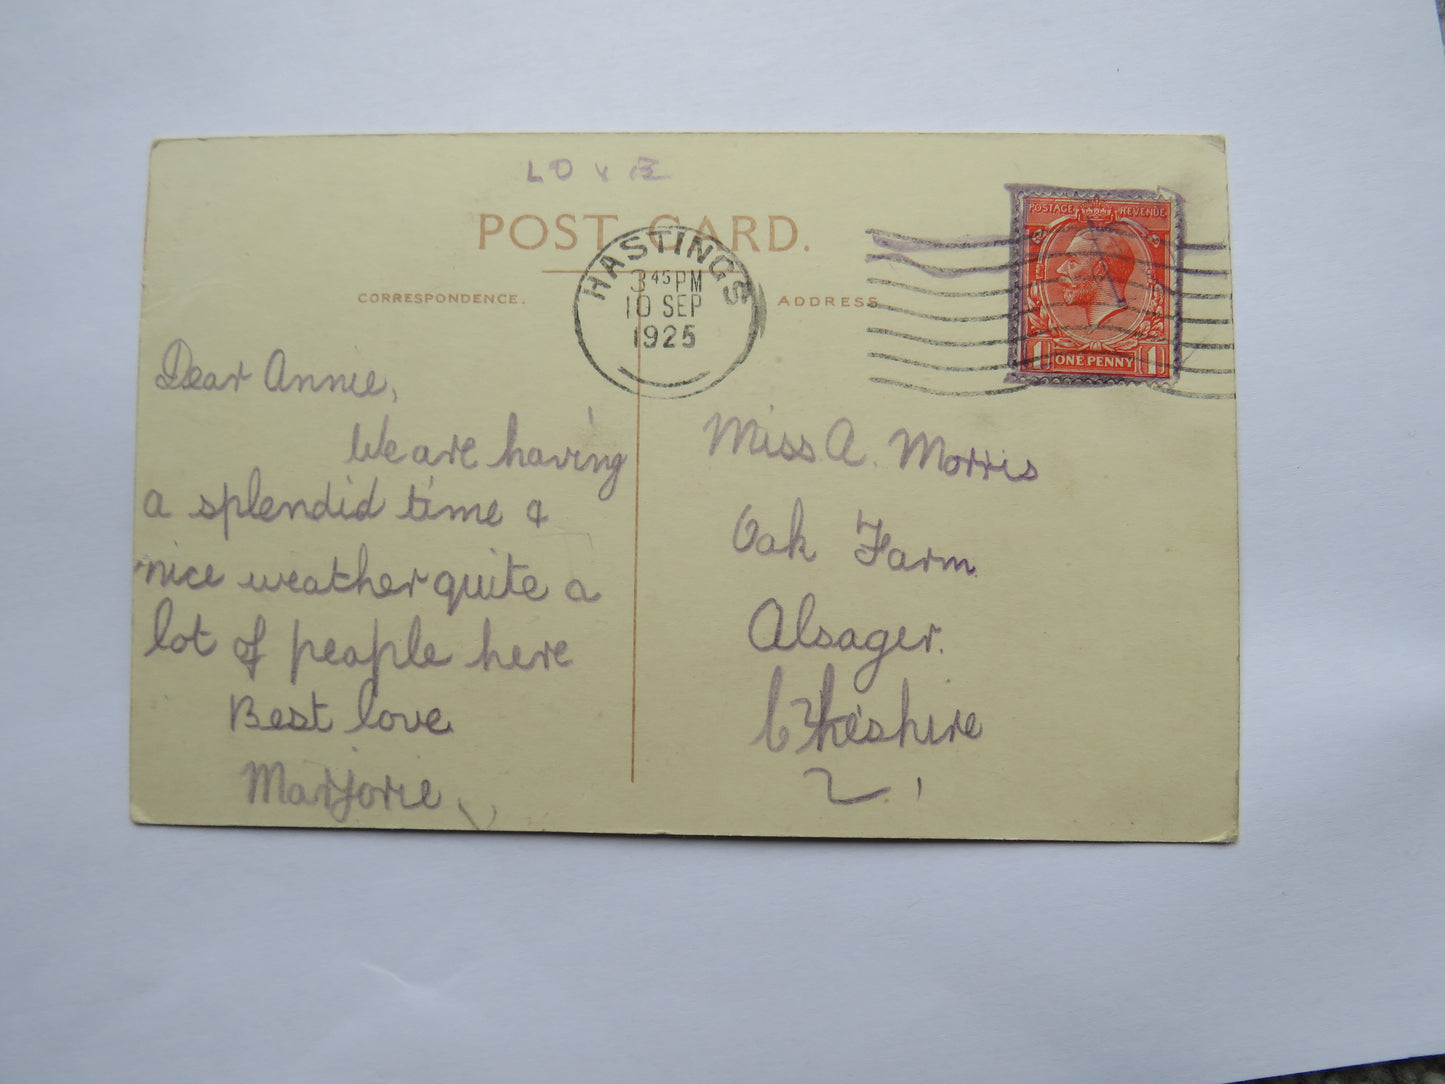 LOVE
POST CARD.
CORRESPONDENCE.
ADDRESS
HASTINGS
3 45 PM
10 SEP
1925
POSTAGE REVENUE
1 ONE PENNY 1
Dear Annie,
We are having
a splendid time &
nice weather quite a
lot of people here
Best love
Marjorie
Miss A. Morris
Oak Farm
Alsager.
Cheshire